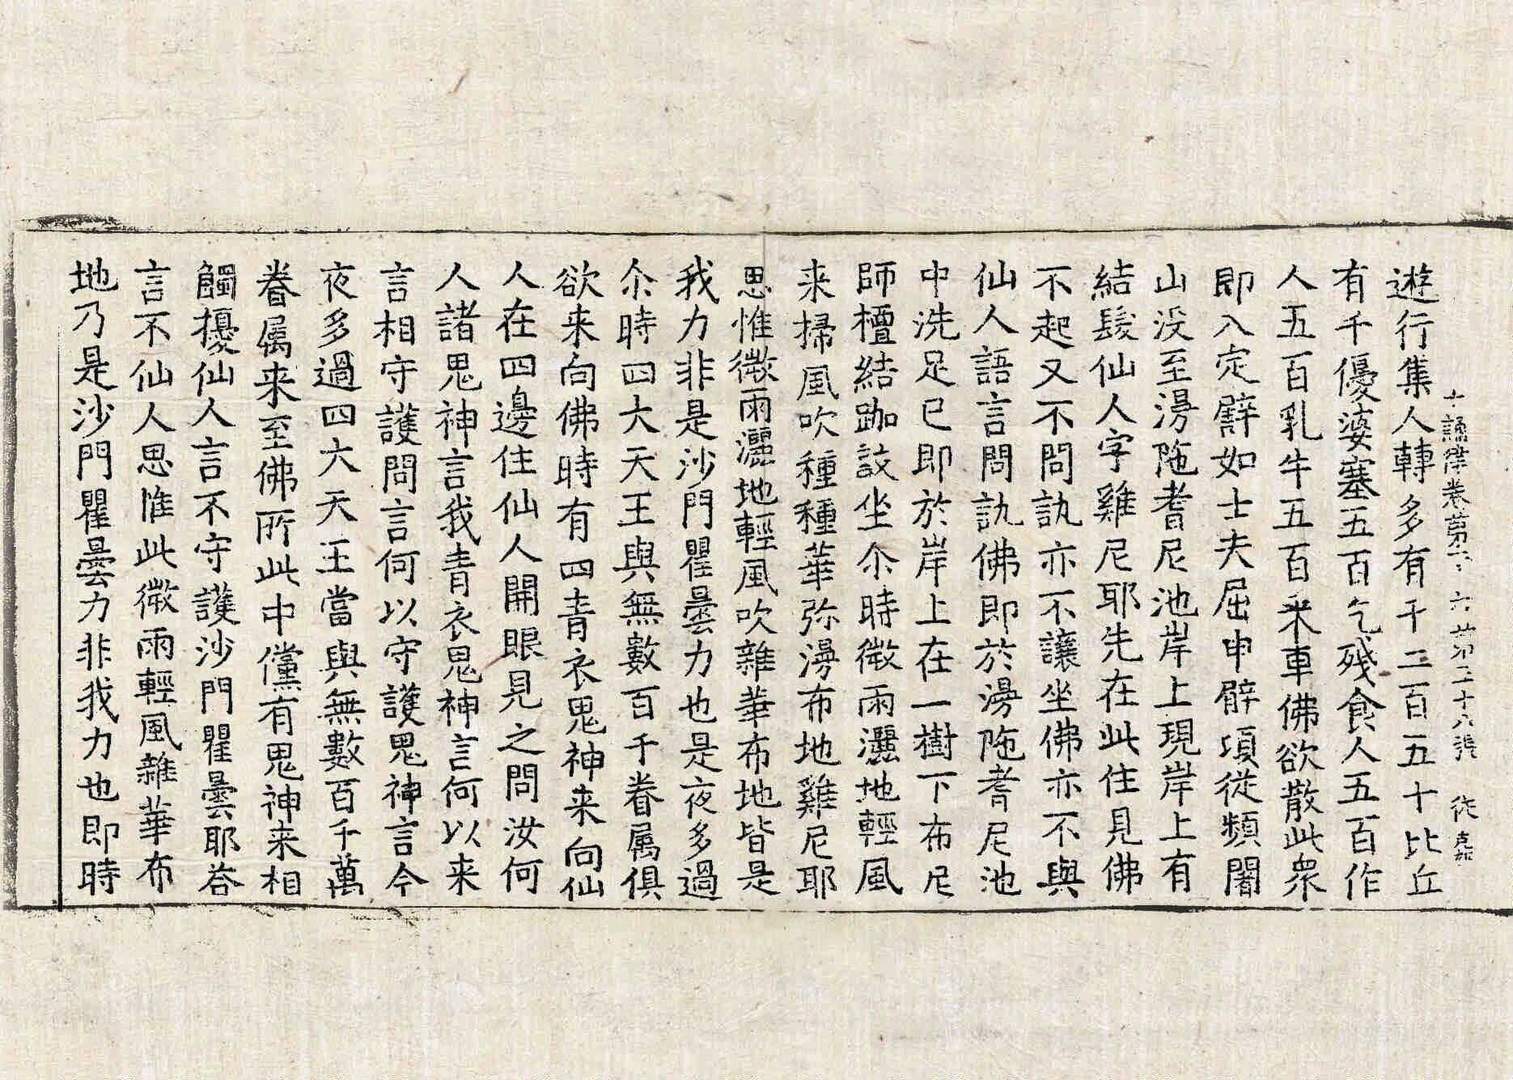 十誦律卷第六 第二十八張 従嘉
遊行集人轉多有千二百五十比丘
有千優婆塞五百乞殘食人五百作
人五百乳牛五百乘車佛欲散此衆
即入定譬如士夫屈申臂項從頻闍
山没至漫陁耆尼池岸上現岸上有
結髮仙人字雞尼耶先在此住見佛
不起又不問訊亦不讓坐佛亦不與
仙人語言問訊佛即於漫陁耆尼池
中洗足已即於岸上在一樹下布尼
師檀結跏趺坐尒時微雨灑地輕風
来掃風吹種種華弥漫布地雞尼耶
思惟微雨灑地輕風吹雜華布地皆是
我力非是沙門瞿曇力也是夜多過
尒時四大天王與無數百千眷属俱
欲来向佛時有四青衣鬼神来向仙
人在四邊住仙人開眼見之問汝何
人諸鬼神言我青衣鬼神言何以来
言相守護問言何以守護鬼神言今
夜多過四大天王當與無數百千萬
眷属来至佛所此中儻有鬼神来相
觸擾仙人言不守護沙門瞿曇耶荅
言不仙人思惟此微雨輕風雜華布
地乃是沙門瞿曇力非我力也即時